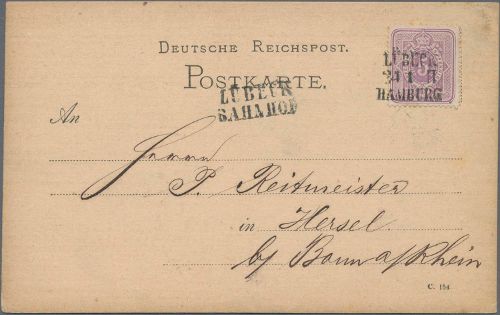 DEUTSCHE REICHSPOST.
POSTKARTE.
LÜBECK
BAHNHOF
LÜBECK
HAMBURG
An
Herrn
P. Reitmeister
in Hersel
b/ Bonn a/Rhein
C. 154